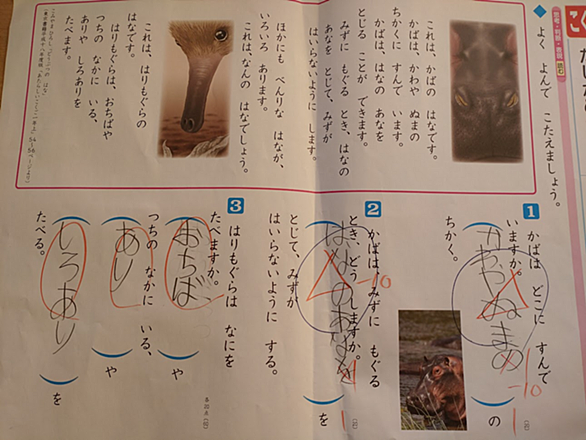 よく よんで こたえましょう。
これは、かばの はなです。
かばは、かわや ぬまの
ちかくに すんで います。
かばは、はなの あなを
とじる ことが できます。
みずに もぐる とき、はなの
あなを とじて、みずが
はいらないように します。
ほかにも べんりな はなが、
いろいろ あります。
これは、なんの はなでしょう。
これは、はりもぐらの
はなです。
はりもぐらは、おちばや
つちの なかに いる、
ありや しろありを
たべます。
1 かばは どこに すんで
いますか。
(かわやぬま)の
ちかく。
2 かばは、みずに もぐる
とき、どう しますか。
(はなのあな)を
とじて、みずが
はいらないように する。
3 はりもぐらは なにを
たべますか。
(おちば)や
つちの なかに いる、
(あり)や
(しろあり)を
たべる。
-10
-10